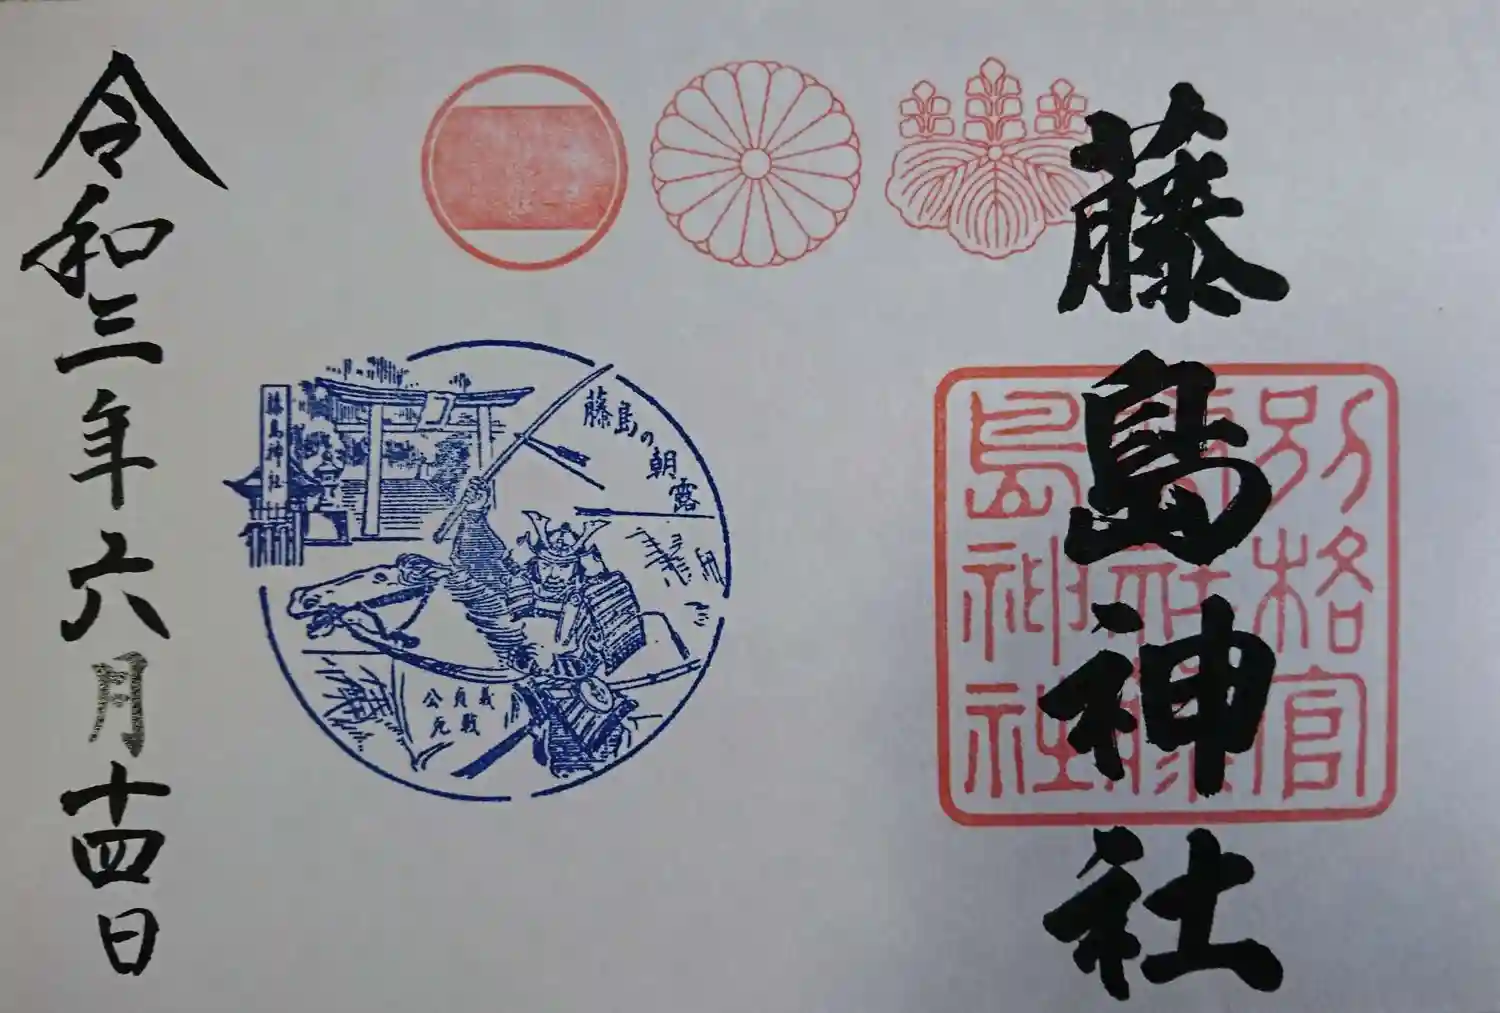 藤島神社
別格官
幣社藤
島神社
藤島の朝露
藤島神社
義貞公
戦死
令和三年六月十四日